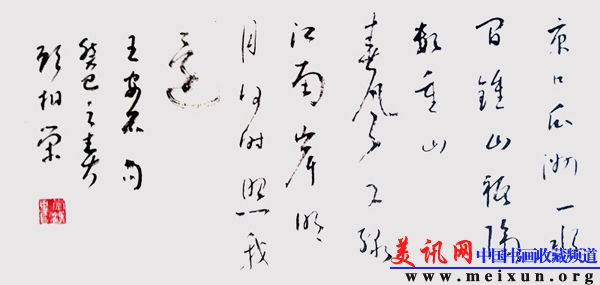 京口瓜洲一水
间钟山祗隔
数重山
春风又绿
江南岸明
月何时照我
还
王安石句
癸巳之春
顾柏荣
美讯网
中国书画收藏频道
www.meixun.org